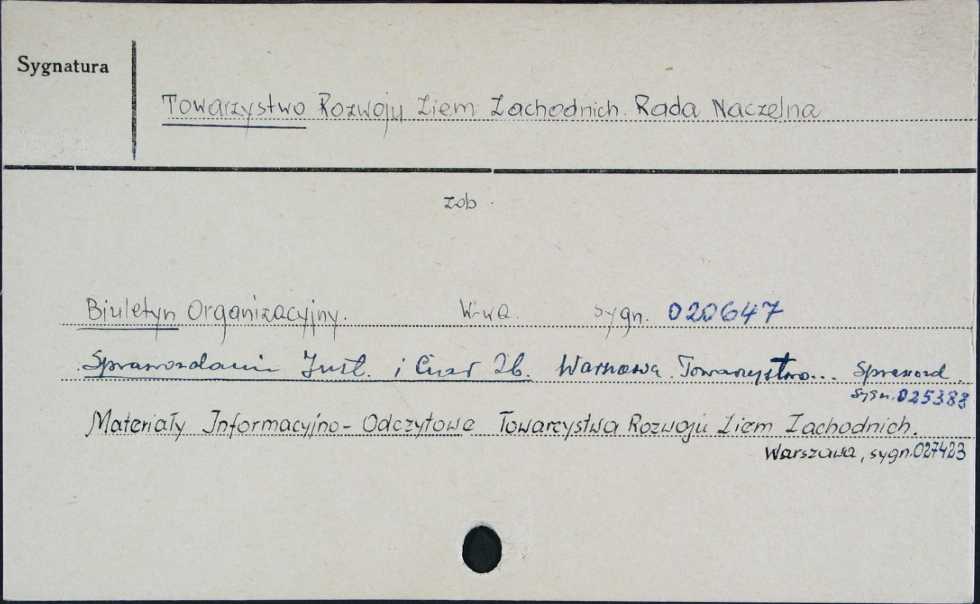 Sygnatura
Towarzystwo Rozwoju Ziem Zachodnich. Rada Naczelna
zob.
Biuletyn Organizacyjny. W-wa. sygn. 020647
Sprawozdanie i Warszawa. Towarzystwo... Sprawozd.
sygn. 025383
Materiały Informacyjno-Odczytowe Towarzystwa Rozwoju Ziem Zachodnich.
Warszawa, sygn. 027423